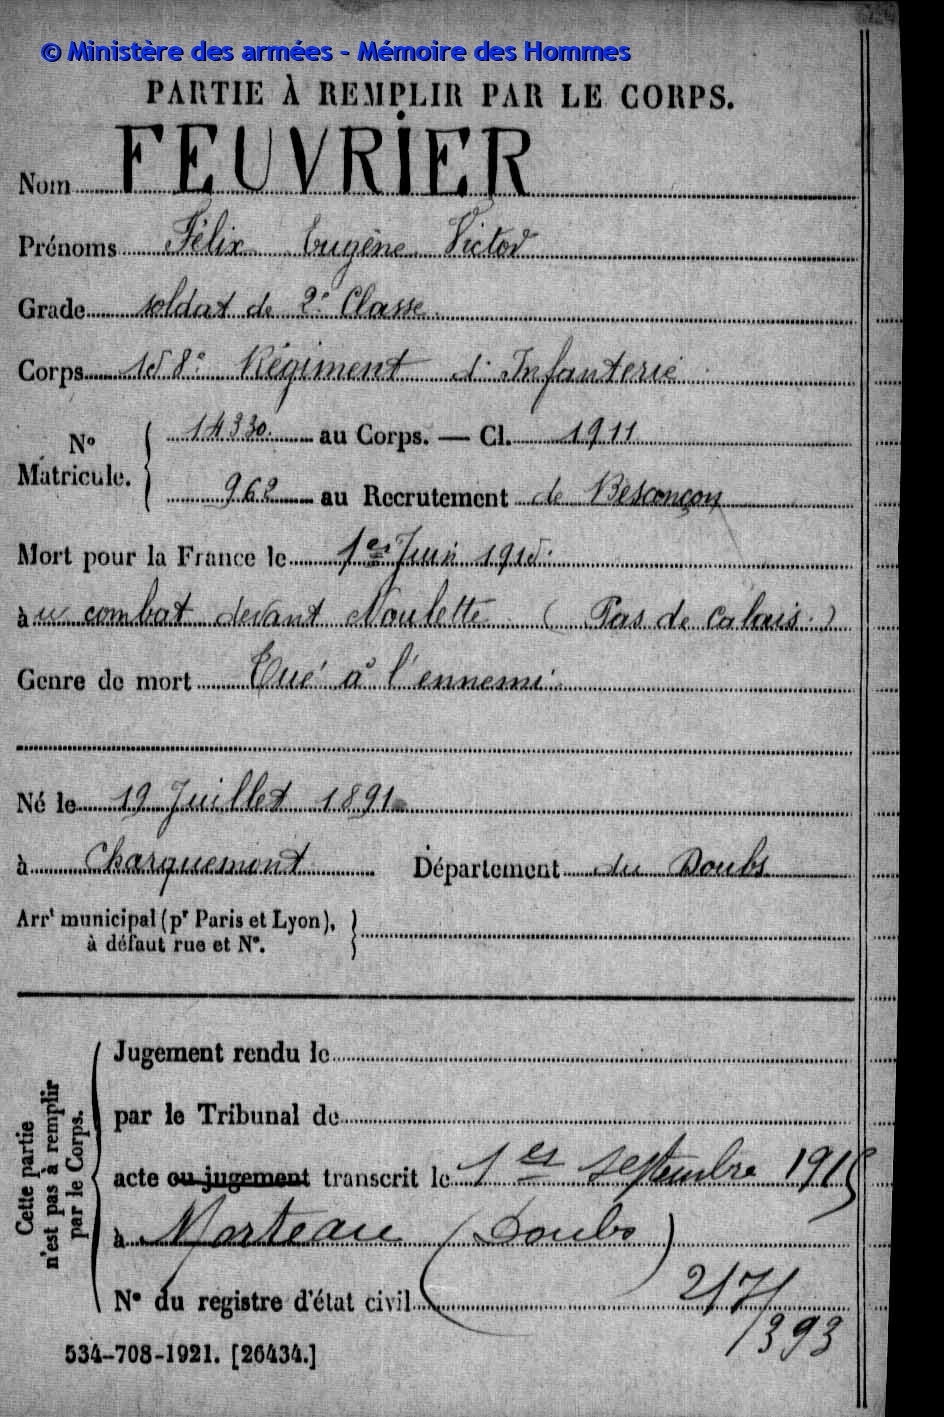 © Ministère des armées - Mémoire des Hommes
PARTIE À REMPLIR PAR LE CORPS.
Nom FEUVRIER
Prénoms Félix Eugène Victor
Grade soldat de 2e Classe.
Corps 158e Régiment d'Infanterie
N° Matricule. { 14330 au Corps. — Cl. 1911
962 au Recrutement de Besançon
Mort pour la France le 1er Juin 1915.
à u combat devant Noulette (Pas de Calais.)
Genre de mort Tué à l'ennemi
Né le 19 Juillet 1891
à Charquemont Département du Doubs
Arrt municipal (pr Paris et Lyon), }
à défaut rue et N°.
Cette partie n'est pas à remplir par le Corps.
Jugement rendu le
par le Tribunal de
acte ou jugement transcrit le 1er septembre 1915
à Morteau (Doubs)
N° du registre d'état civil 217/393
534-708-1921. [26434.]